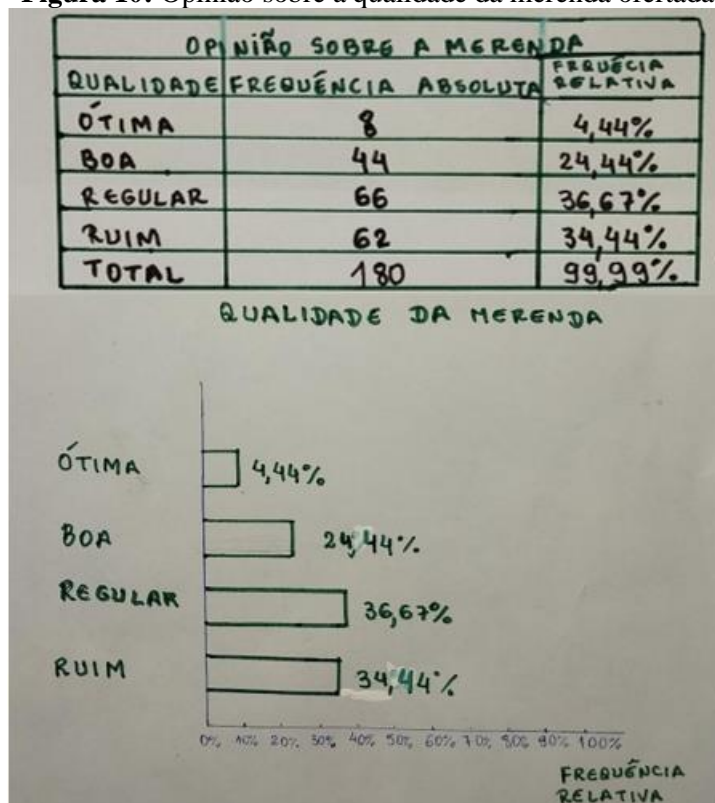 Figura 10: Opinião sobre a qualidade da merenda ofertada
OPINIÃO SOBRE A MERENDA
QUALIDADE FREQUÊNCIA ABSOLUTA FREQUÊCIA RELATIVA
ÓTIMA 8 4,44%
BOA 44 24,44%
REGULAR 66 36,67%
RUIM 62 34,44%
TOTAL 180 99,99%
QUALIDADE DA MERENDA
ÓTIMA 4,44%
BOA 24,44%
REGULAR 36,67%
RUIM 34,44%
0% 10% 20% 30% 40% 50% 60% 70% 80% 90% 100%
FREQUÊNCIA
RELATIVA